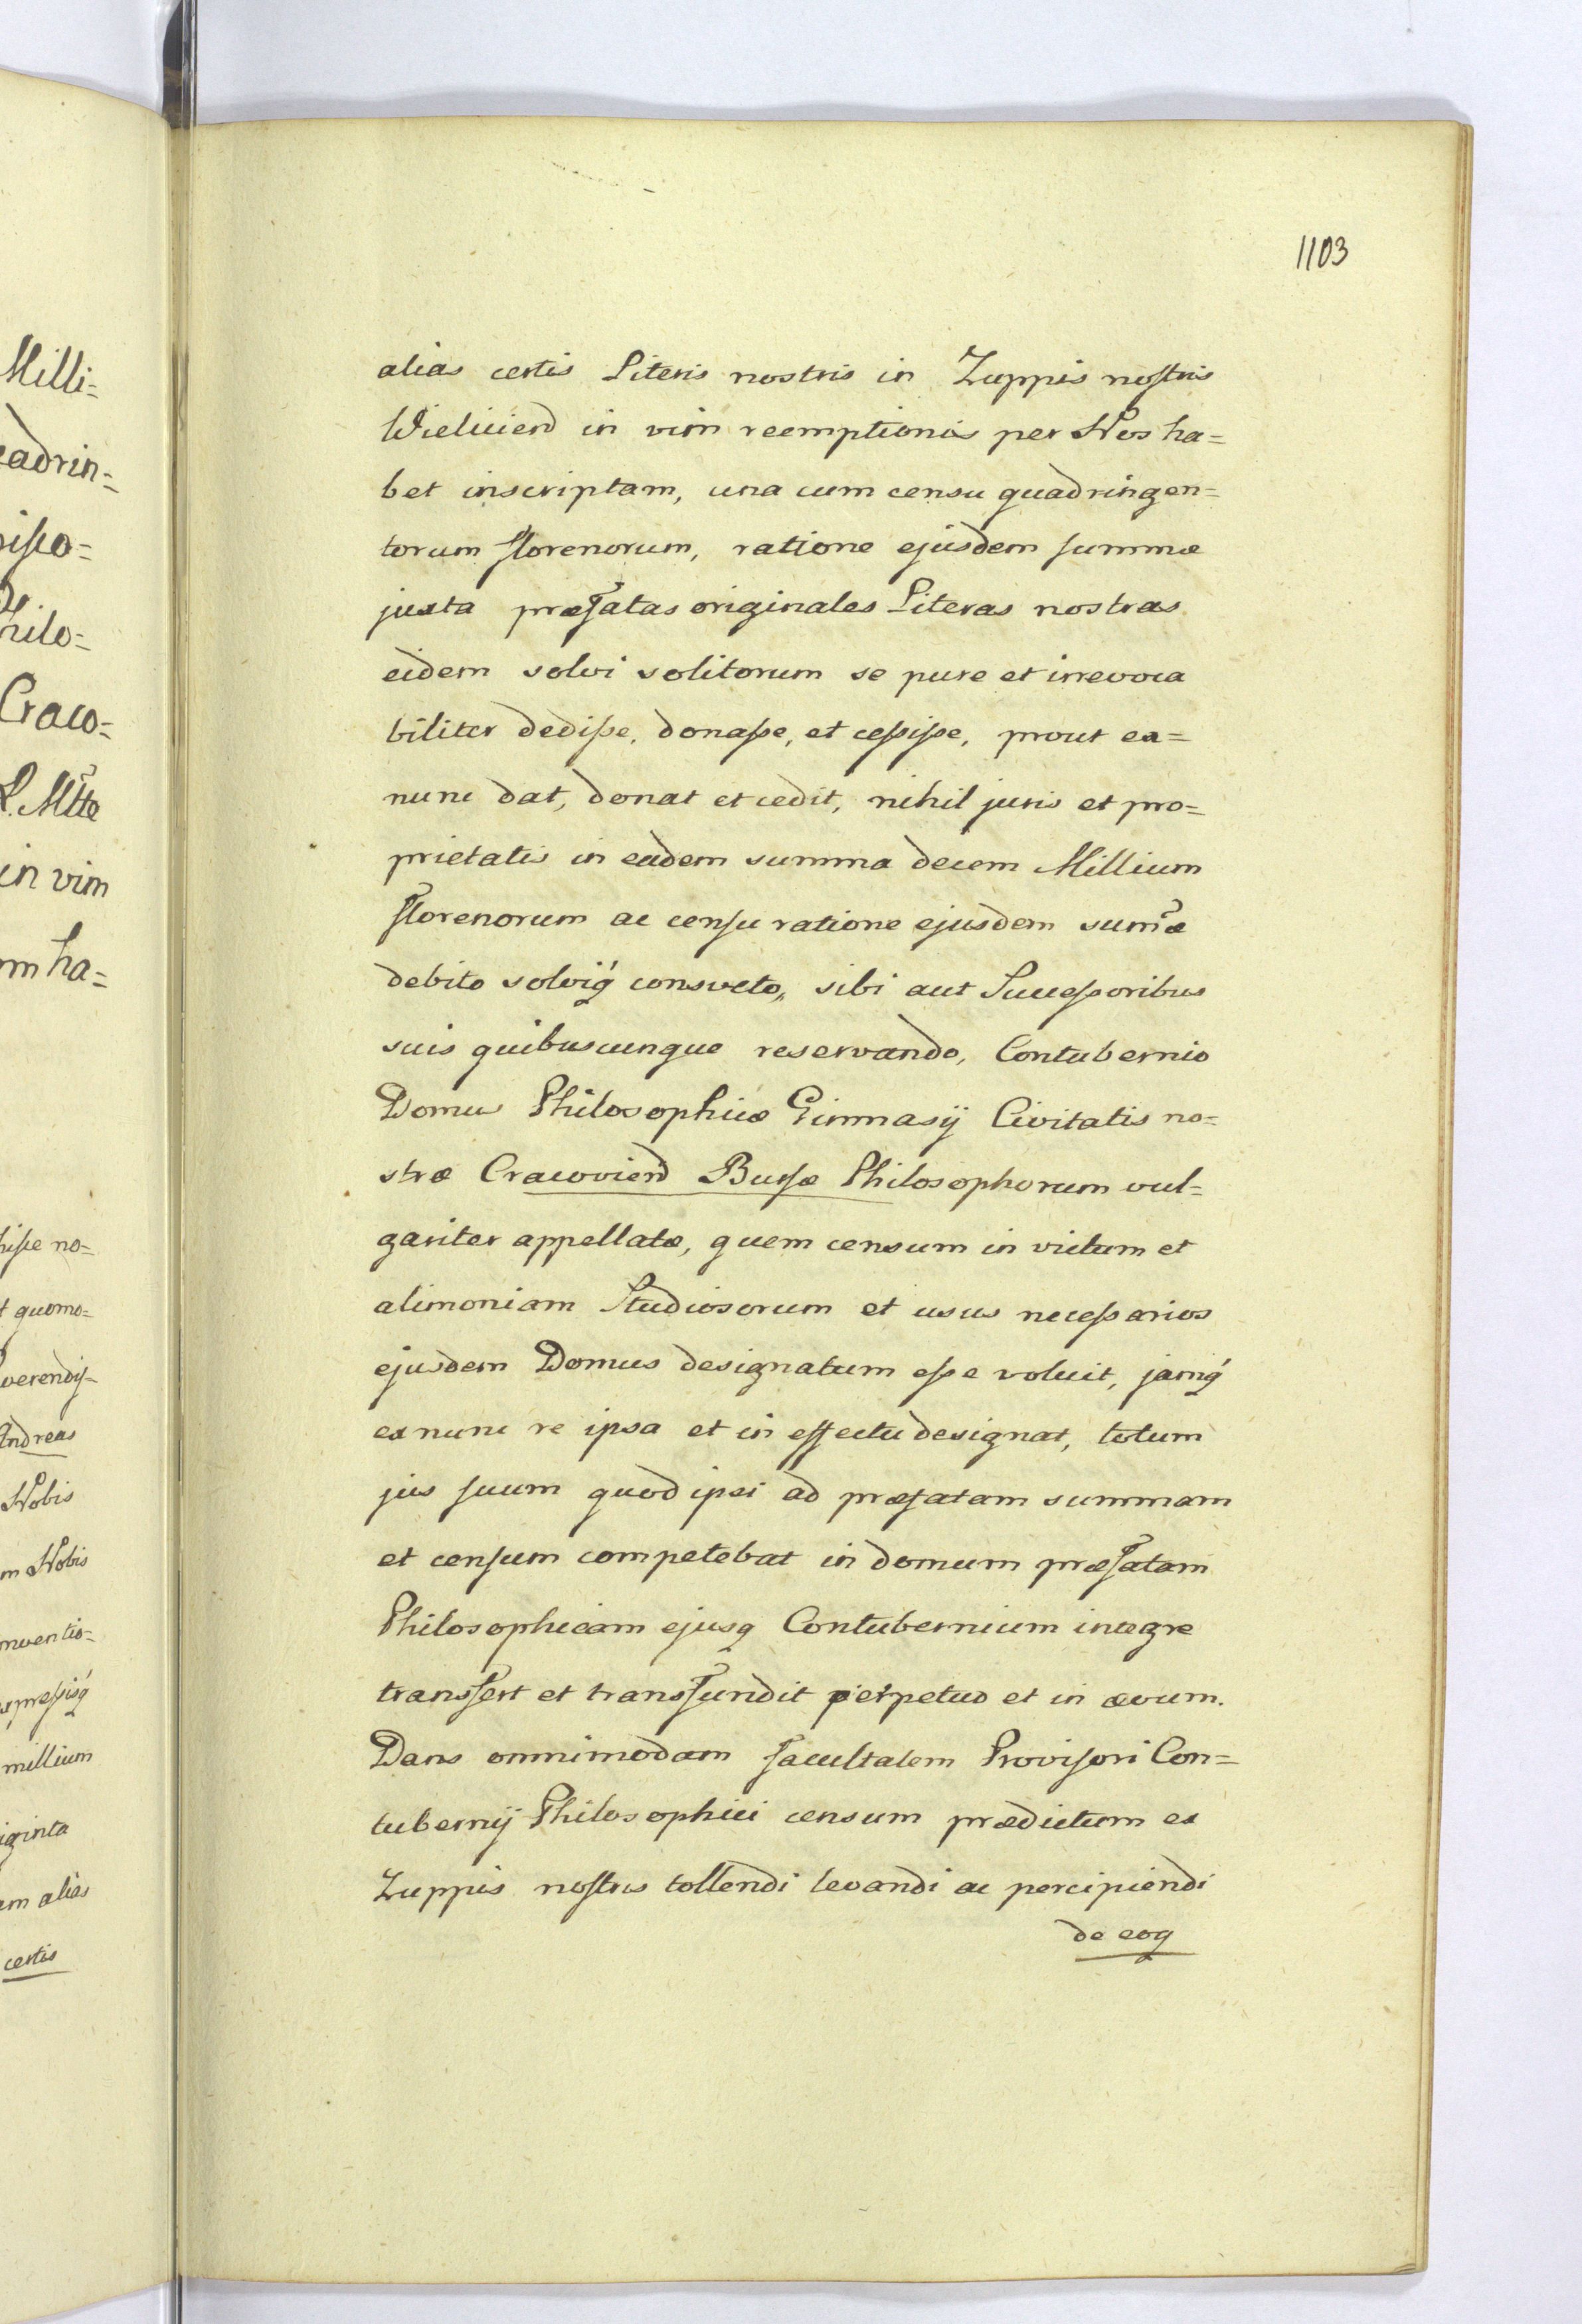 Milli=
eadrin=
Craco=
in vim
m ha=
t quomo=
Andreas
Nobis
m Nobis
millium
iginta
em alias
certis
1103
alias certis Literis nostris in Zuppis nostris
Wielicien̄ in vim reemptionis per Nos ha=
bet inscriptam, una cum censu quadringen=
torum florenorum, ratione ejusdem summæ
juxta præfatas originales Literas nostras
eidem solvi solitorum se pure et irrevoca
biliter dedisse, donasse, et cessisse, prout ex=
nunc dat, donat et cedit, nihil juris et pro=
prietatis in eadem summa decem Millium
florenorum ac censu ratione ejusdem sum̄æ
debito solviq́ consveto, sibi aut Successoribus
suis quibuscunque reservando, Contubernio
Domus Philosophicæ Gimnasij Civitatis no=
stræ Cracovien̄ Bursæ Philosophorum vul=
gariter appellatæ, quem censum in victum et
alimoniam Studiosorum et usus necessarios
ejusdem Domus designatum esse voluit, jamq́
ex nunc re ipsa et in effectu designat, totum
jus suum quod ipsi ad præfatam summam
et censum competebat in domum præfatam
Philosophicam ejusq Contubernium integre
transfert et transfundit perpetuo et in ævum.
Dans omnimodam facultatem Provisori Con=
tubernij Philosophici censum prædictum ex
Zuppis nostris tollendi levandi ac percipiendi
de eoq